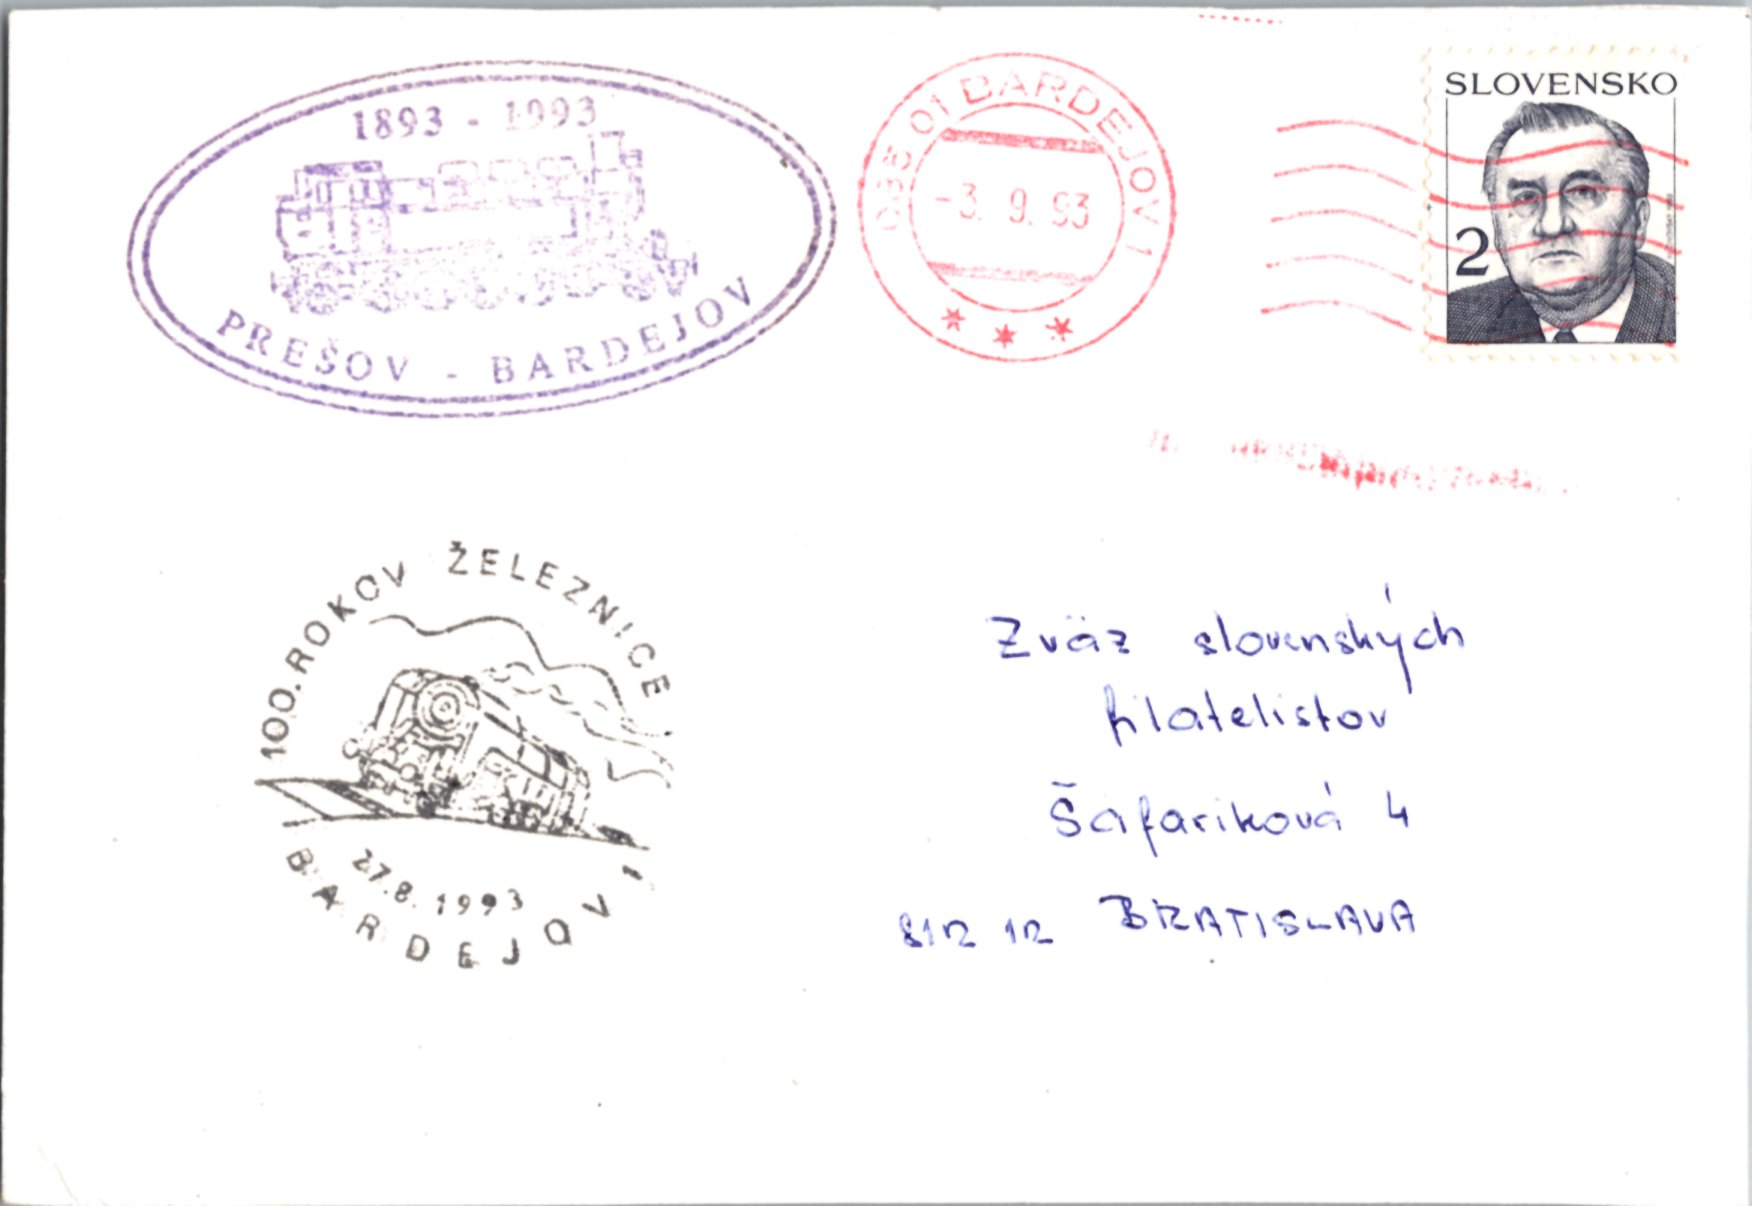 1893 - 1993
PREŠOV - BARDEJOV
085 01 BARDEJOV 1
-3. 9. 93
SLOVENSKO
2
100. ROKOV ŽELEZNICE
27.8.1993
BARDEJOV 1
Zväz slovenských
filatelistov
Šafariková 4
812 12 BRATISLAVA